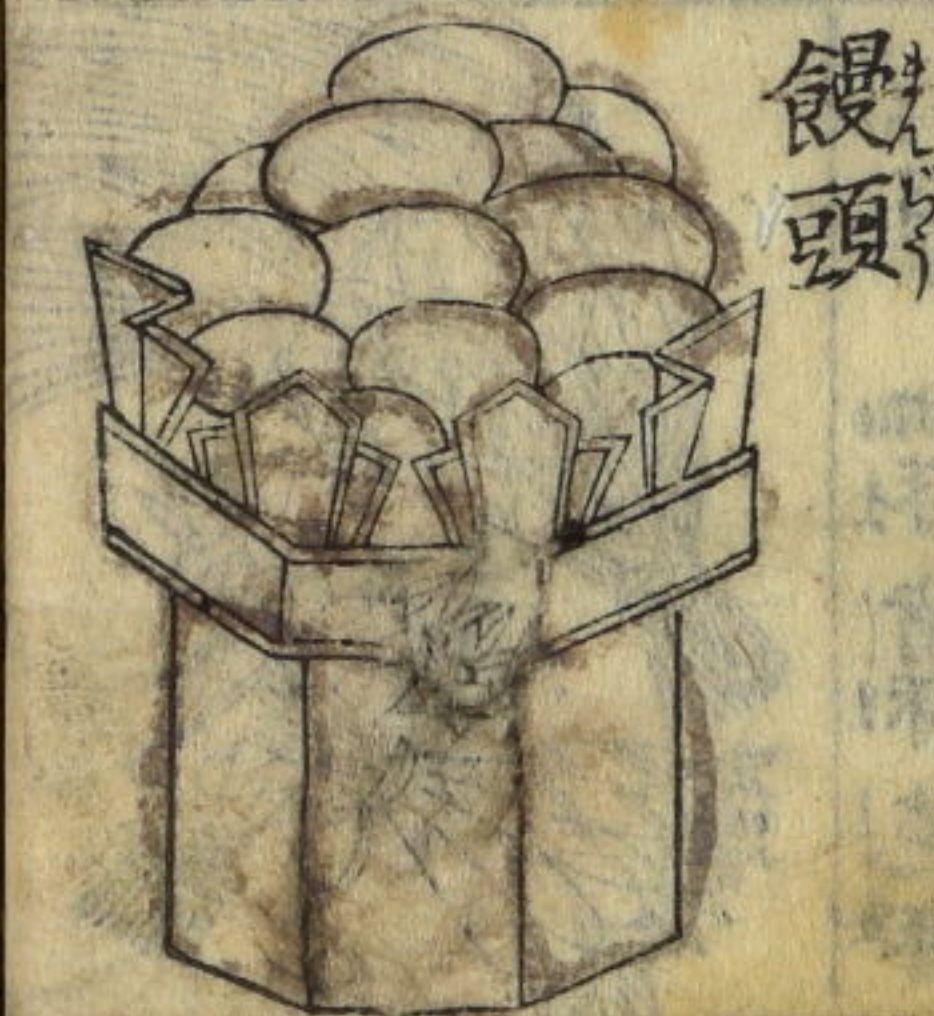 饅頭
まんぢう